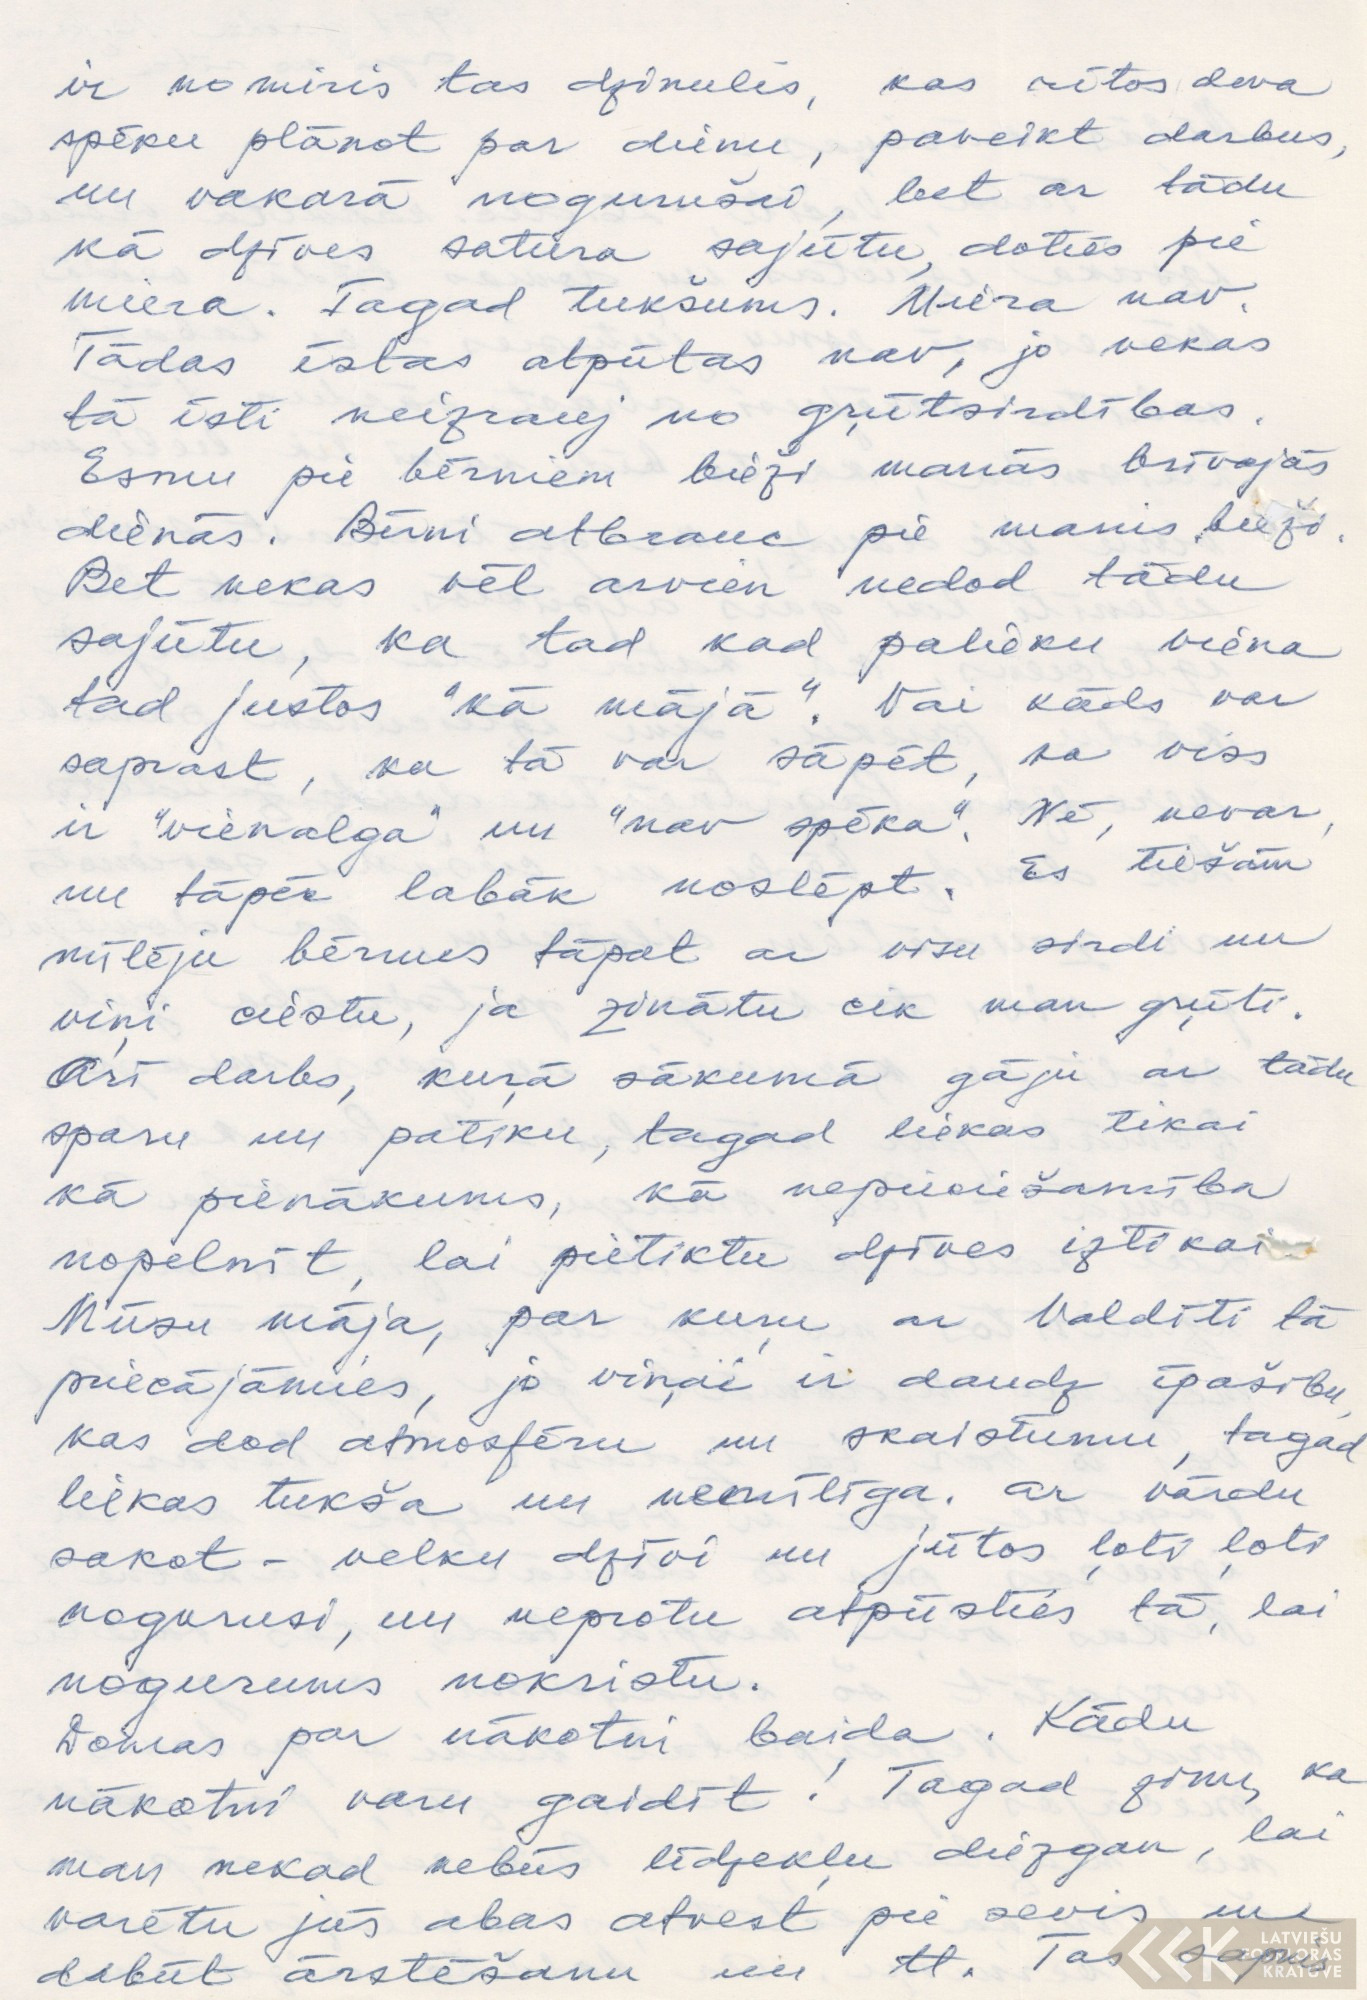 ir nomiris tas dzinulis, kas rītos deva
spēku plānot par dienu, paveikt darbus,
un vakarā nogurušai, bet ar tādu
kā dzīves satura sajūtu, doties pie
miera. Tagad tukšums. Miera nav.
Tādas īstas atpūtas nav, jo nekas
tā īsti neizrauj no grūtsirdības.
Esmu pie bērniem bieži manās brīvajās
dienās. Bērni atbrauc pie manis bieži.
Bet nekas vēl arvien nedod tādu
sajūtu, ka tad kad palieku viena
tad justos "kā mājā". Vai kāds var
saprast, ka tā var sāpēt, ka viss
ir "vienalga" un "nav spēka". Nē, nevar,
un tāpēc labāk noslēpt. Es tiešām
mīlēju bērnus tāpat ar visu sirdi un
viņi ciestu, ja zinātu cik man grūti.
Arī darbs, kuŗā sākumā gāju ar tādu
sparu un patiku, tagad liekas tikai
kā pienākums, kā nepieciešamība
nopelnīt, lai pietiktu dzīves iztikai
Mūsu māja, par kuŗu ar Valdīti tā
priecājāmies, jo viņai ir daudz īpašību,
kas dod atmosfēru un skaistumu, tagad
liekas tukša un nemīlīga. Ar vārdu
sakot - velku dzīvi un jūtos ļoti ļoti
nogurusi, un neprotu atpūsties tā, lai
nogurums nokristu.
Domas par nākotni baida. Kādu
nākotni varu gaidīt! Tagad zinu, ka
man nekad nebūs līdzekļu diezgan, lai
varētu jūs abas atvest pie sevis un
dabūt ārstēšanu un tt. Tas sapnis
LATVIEŠU
FOLKLORAS
KRĀTUVE